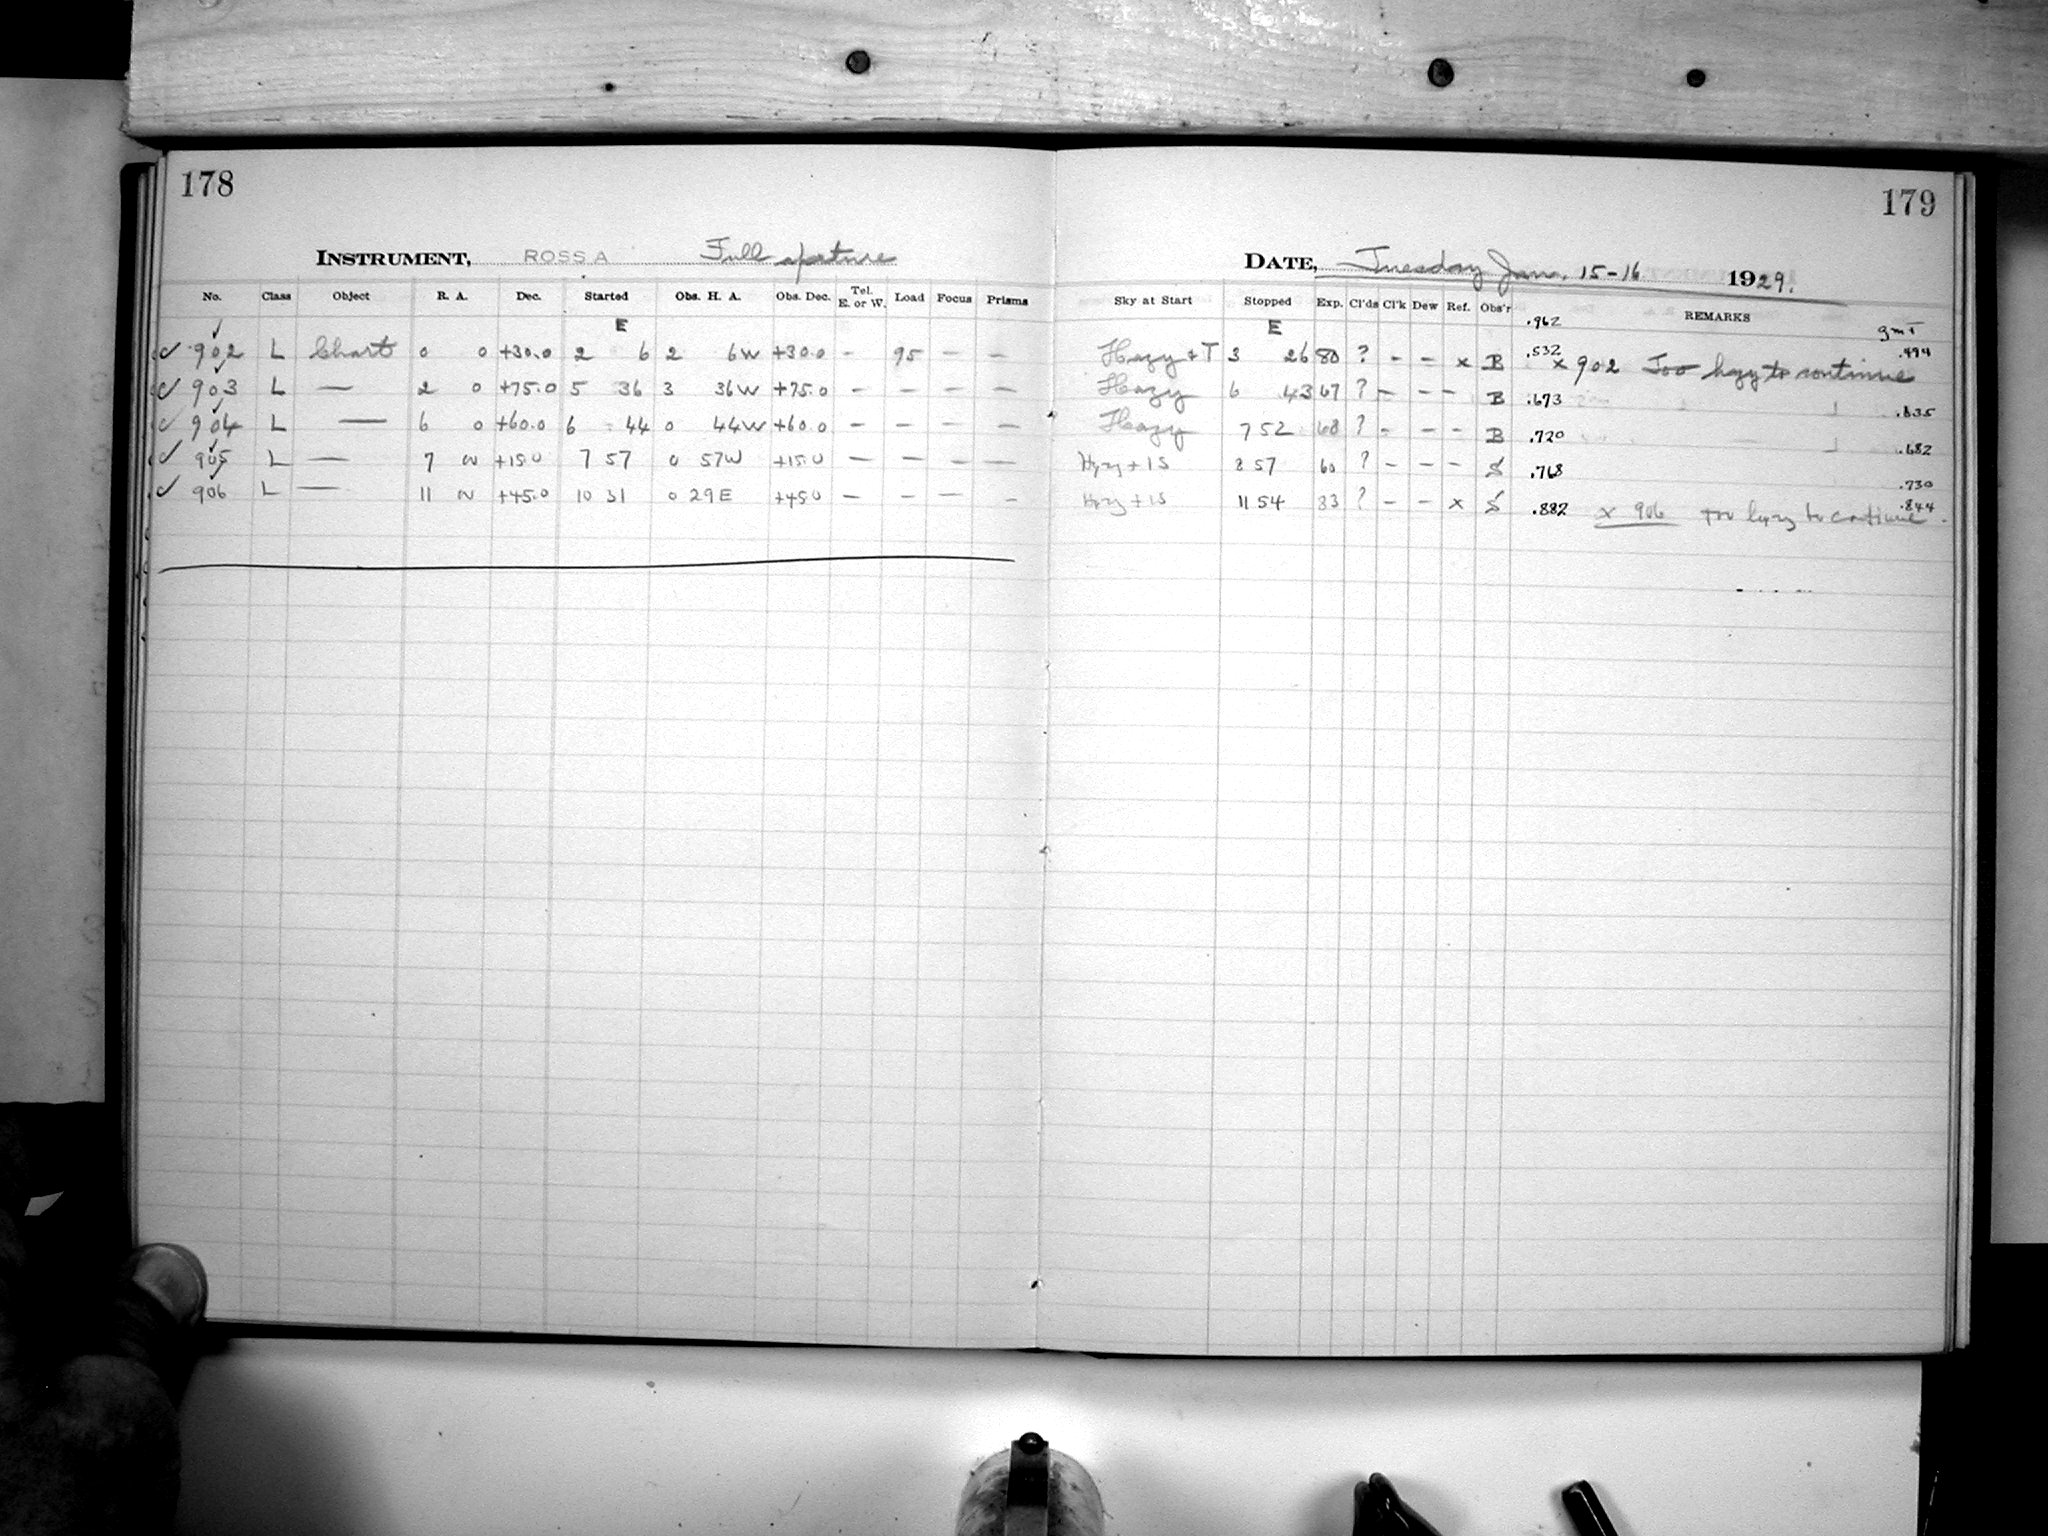 178
179
INSTRUMENT, ROSS A Full aperture
DATE, Tuesday Jan. 15-16 1929.
No. Class Object R. A. Dec. Started Obs. H. A. Obs. Dec. Tel. E. or W. Load Focus Prisms Sky at Start Stopped Exp. Cl'ds Cl'k Dew Ref. Obs'r REMARKS
E E .962 gmT
✓ 902 L Chart 0 0 +30.0 2 6 2 6W +30.0 - 95 - - Hazy + T 3 26 80 ? - - x B .532 x 902 Too hazy to continue .494
✓ 903 L — 2 0 +75.0 5 36 3 36W +75.0 - - - - Hazy 6 43 67 ? - - - B .673 .635
✓ 904 L — 6 0 +60.0 6 44 0 44W +60.0 - - - - Hazy 7 52 68 ? - - - B .720 .682
✓ 905 L — 7 +15.0 7 57 0 57W +15.0 - - - - Hazy + 1S 8 57 60 ? - - - S .768 .730
✓ 906 L — 11 +45.0 10 31 0 29E +45.0 - - - - Hazy + 1S 11 54 83 ? - - x S .882 x 906 too hazy to continue. .844